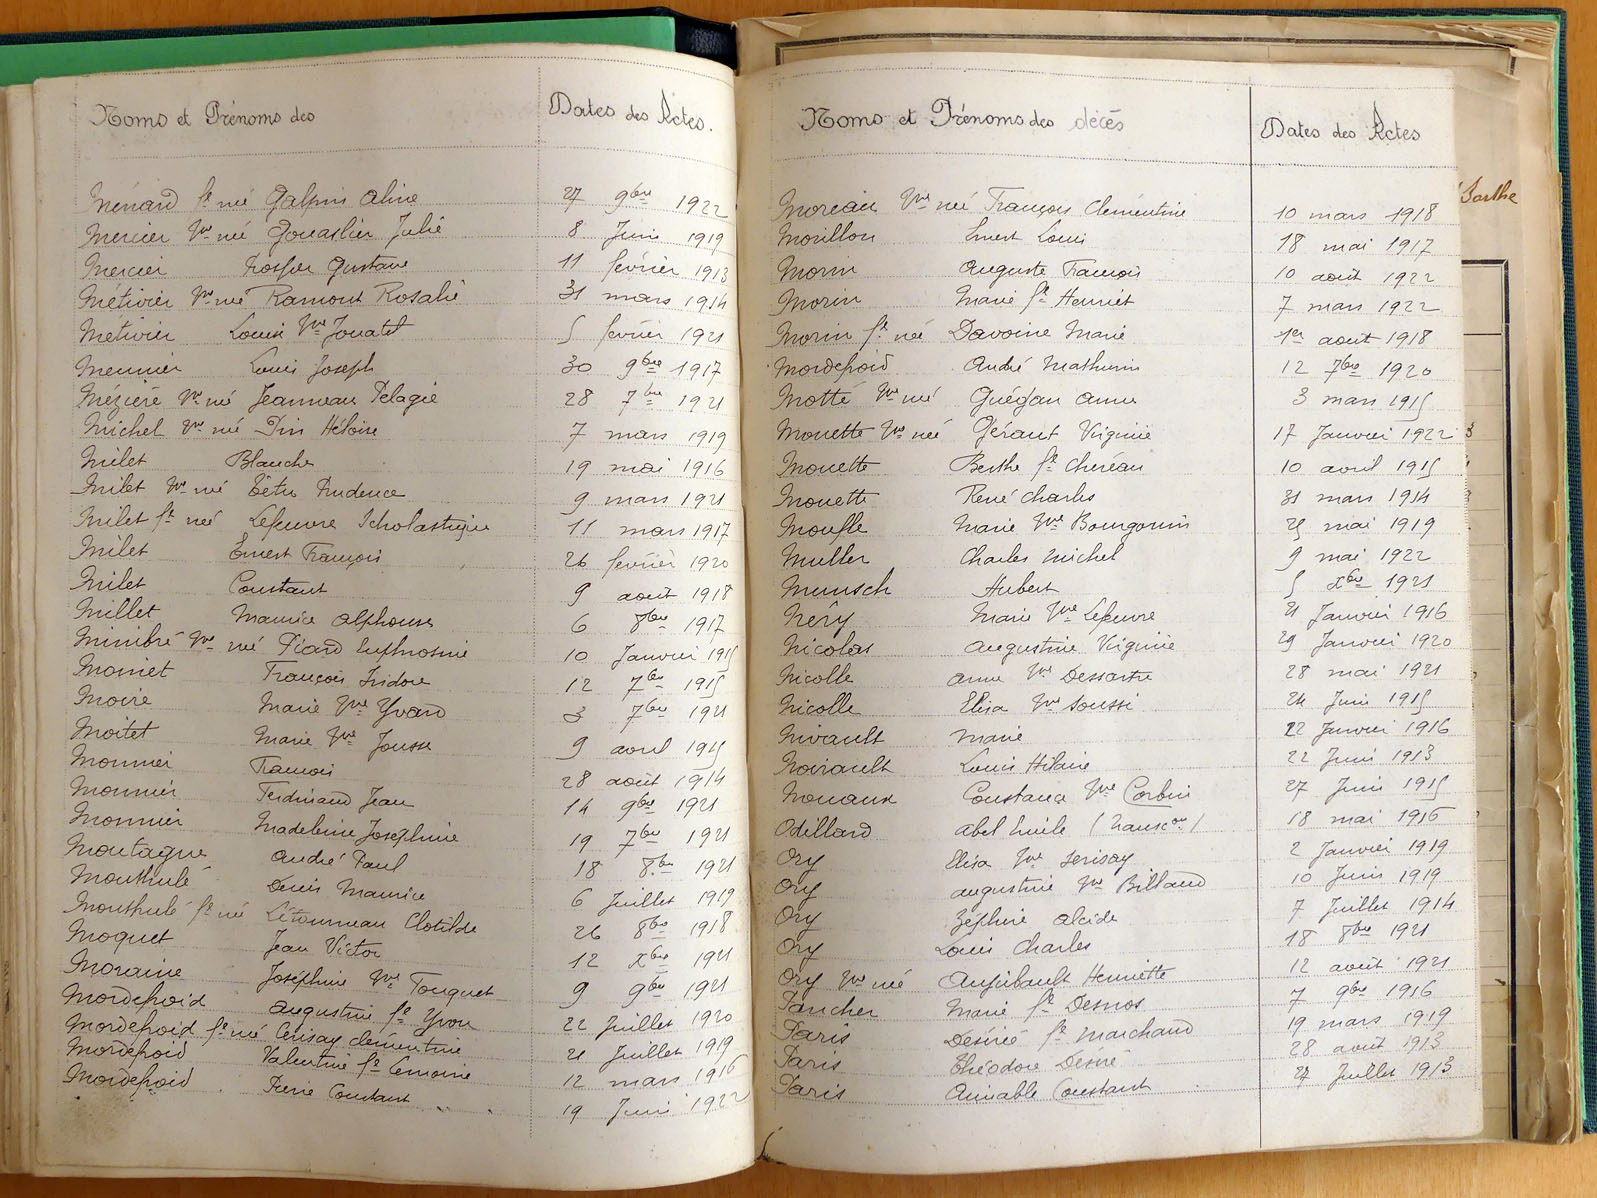 Noms et Prénoms des Dates des Actes.
Ménard fe née Galpin Aline 27 9bre 1922
Mercier Vve née Gouaslier Julie 8 Juin 1919
Mercier Prosper Gustave 11 février 1913
Métivier Vve née Ramont Rosalie 31 mars 1914
Métivier Louise Vve Jouatel 5 février 1921
Meunier Louis Joseph 30 9bre 1917
Mézière Vve née Jeanneau Pélagie 28 7bre 1921
Michel Vve née Pin Héloïse 7 mars 1919
Milet Blanche 19 mai 1916
Milet Vve née Têtu Prudence 9 mars 1921
Milet fe née Lefeuvre Scholastique 11 mars 1917
Milet Ernest François 26 février 1920
Milet Constant 9 août 1918
Millet Maurice Alphonse 6 8bre 1917
Mimbré Vve née Picard Euphrosine 10 Janvier 1915
Moinet François Isidore 12 7bre 1915
Moire Marie Vve Yvard 3 7bre 1921
Moitet Marie Vve Jousse 9 avril 1915
Monnier François 28 août 1914
Monnier Ferdinand Jean 14 9bre 1921
Monnier Madeleine Joséphine 19 7bre 1921
Montagne André Paul 18 8bre 1921
Monthulé Denis Maurice 6 Juillet 1919
Monthulé fe née Létonneau Clotilde 26 8bre 1918
Moquet Jean Victor 12 Xbre 1921
Moraine Joséphine Vve Touquet 9 9bre 1921
Mordefroid Augustine fe Yvon 22 Juillet 1920
Mordefroid fe née Cerisay Clémentine 21 Juillet 1919
Mordefroid Valentine fe Lemoine 12 mars 1916
Mordefroid Pierre Constant 19 Juin 1922
Noms et Prénoms des décès Dates des Actes
Moreau Vve née François Clémentine 10 mars 1918
Morillon Ernest Louis 18 mai 1917
Morin Auguste François 10 août 1922
Morin Marie fe Henriet 7 mars 1922
Morin fe née Davoine Marie 1er août 1918
Mordefroid André Mathurin 12 7bre 1920
Motté Vve née Guégan Anne 3 mars 1915
Mouette Vve née Gérant Virginie 17 Janvier 1922
Mouette Berthe fe Chereau 10 avril 1915
Mouette René Charles 31 mars 1914
Moufle Marie Vve Bourgouin 25 mai 1919
Muller Charles Michel 9 mai 1922
Munsch Hubert 5 Xbre 1921
Néry Marie Vve Lefeuvre 21 Janvier 1916
Nicolas Augustine Virginie 29 Janvier 1920
Nicolle Anne Vve Dessartre 28 mai 1921
Nicolle Elisa Vve Soussi 24 Juin 1915
Nivault Marie 22 Janvier 1916
Noirault Louis Hilaire 22 Juin 1913
Nouaux Constance Vve Corbin 27 Juin 1915
Odillard Abel Emile (Transcon) 18 mai 1916
Ory Elisa Vve Serisay 2 Janvier 1919
Ory Augustine Vve Billaud 10 Juin 1919
Ory Zéphir Alcide 7 Juillet 1914
Ory Louis Charles 18 8bre 1921
Ory Vve née Anjubault Henriette 12 août 1921
Pancher Marie fe Desnos 7 9bre 1916
Paris Désirée fe Marchand 19 mars 1919
Paris Théodore Désiré 28 août 1913
Paris Aimable Constant 27 Juillet 1913
Sarthe